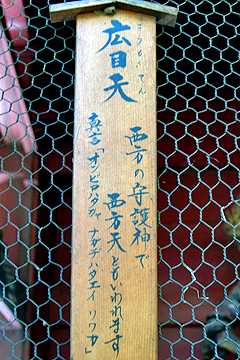 こうもくてん
広目天
西方の守護神で
西方天ともいわれます
真言「オン ビロバクシャ ナガヂハタエイ ソワカ」